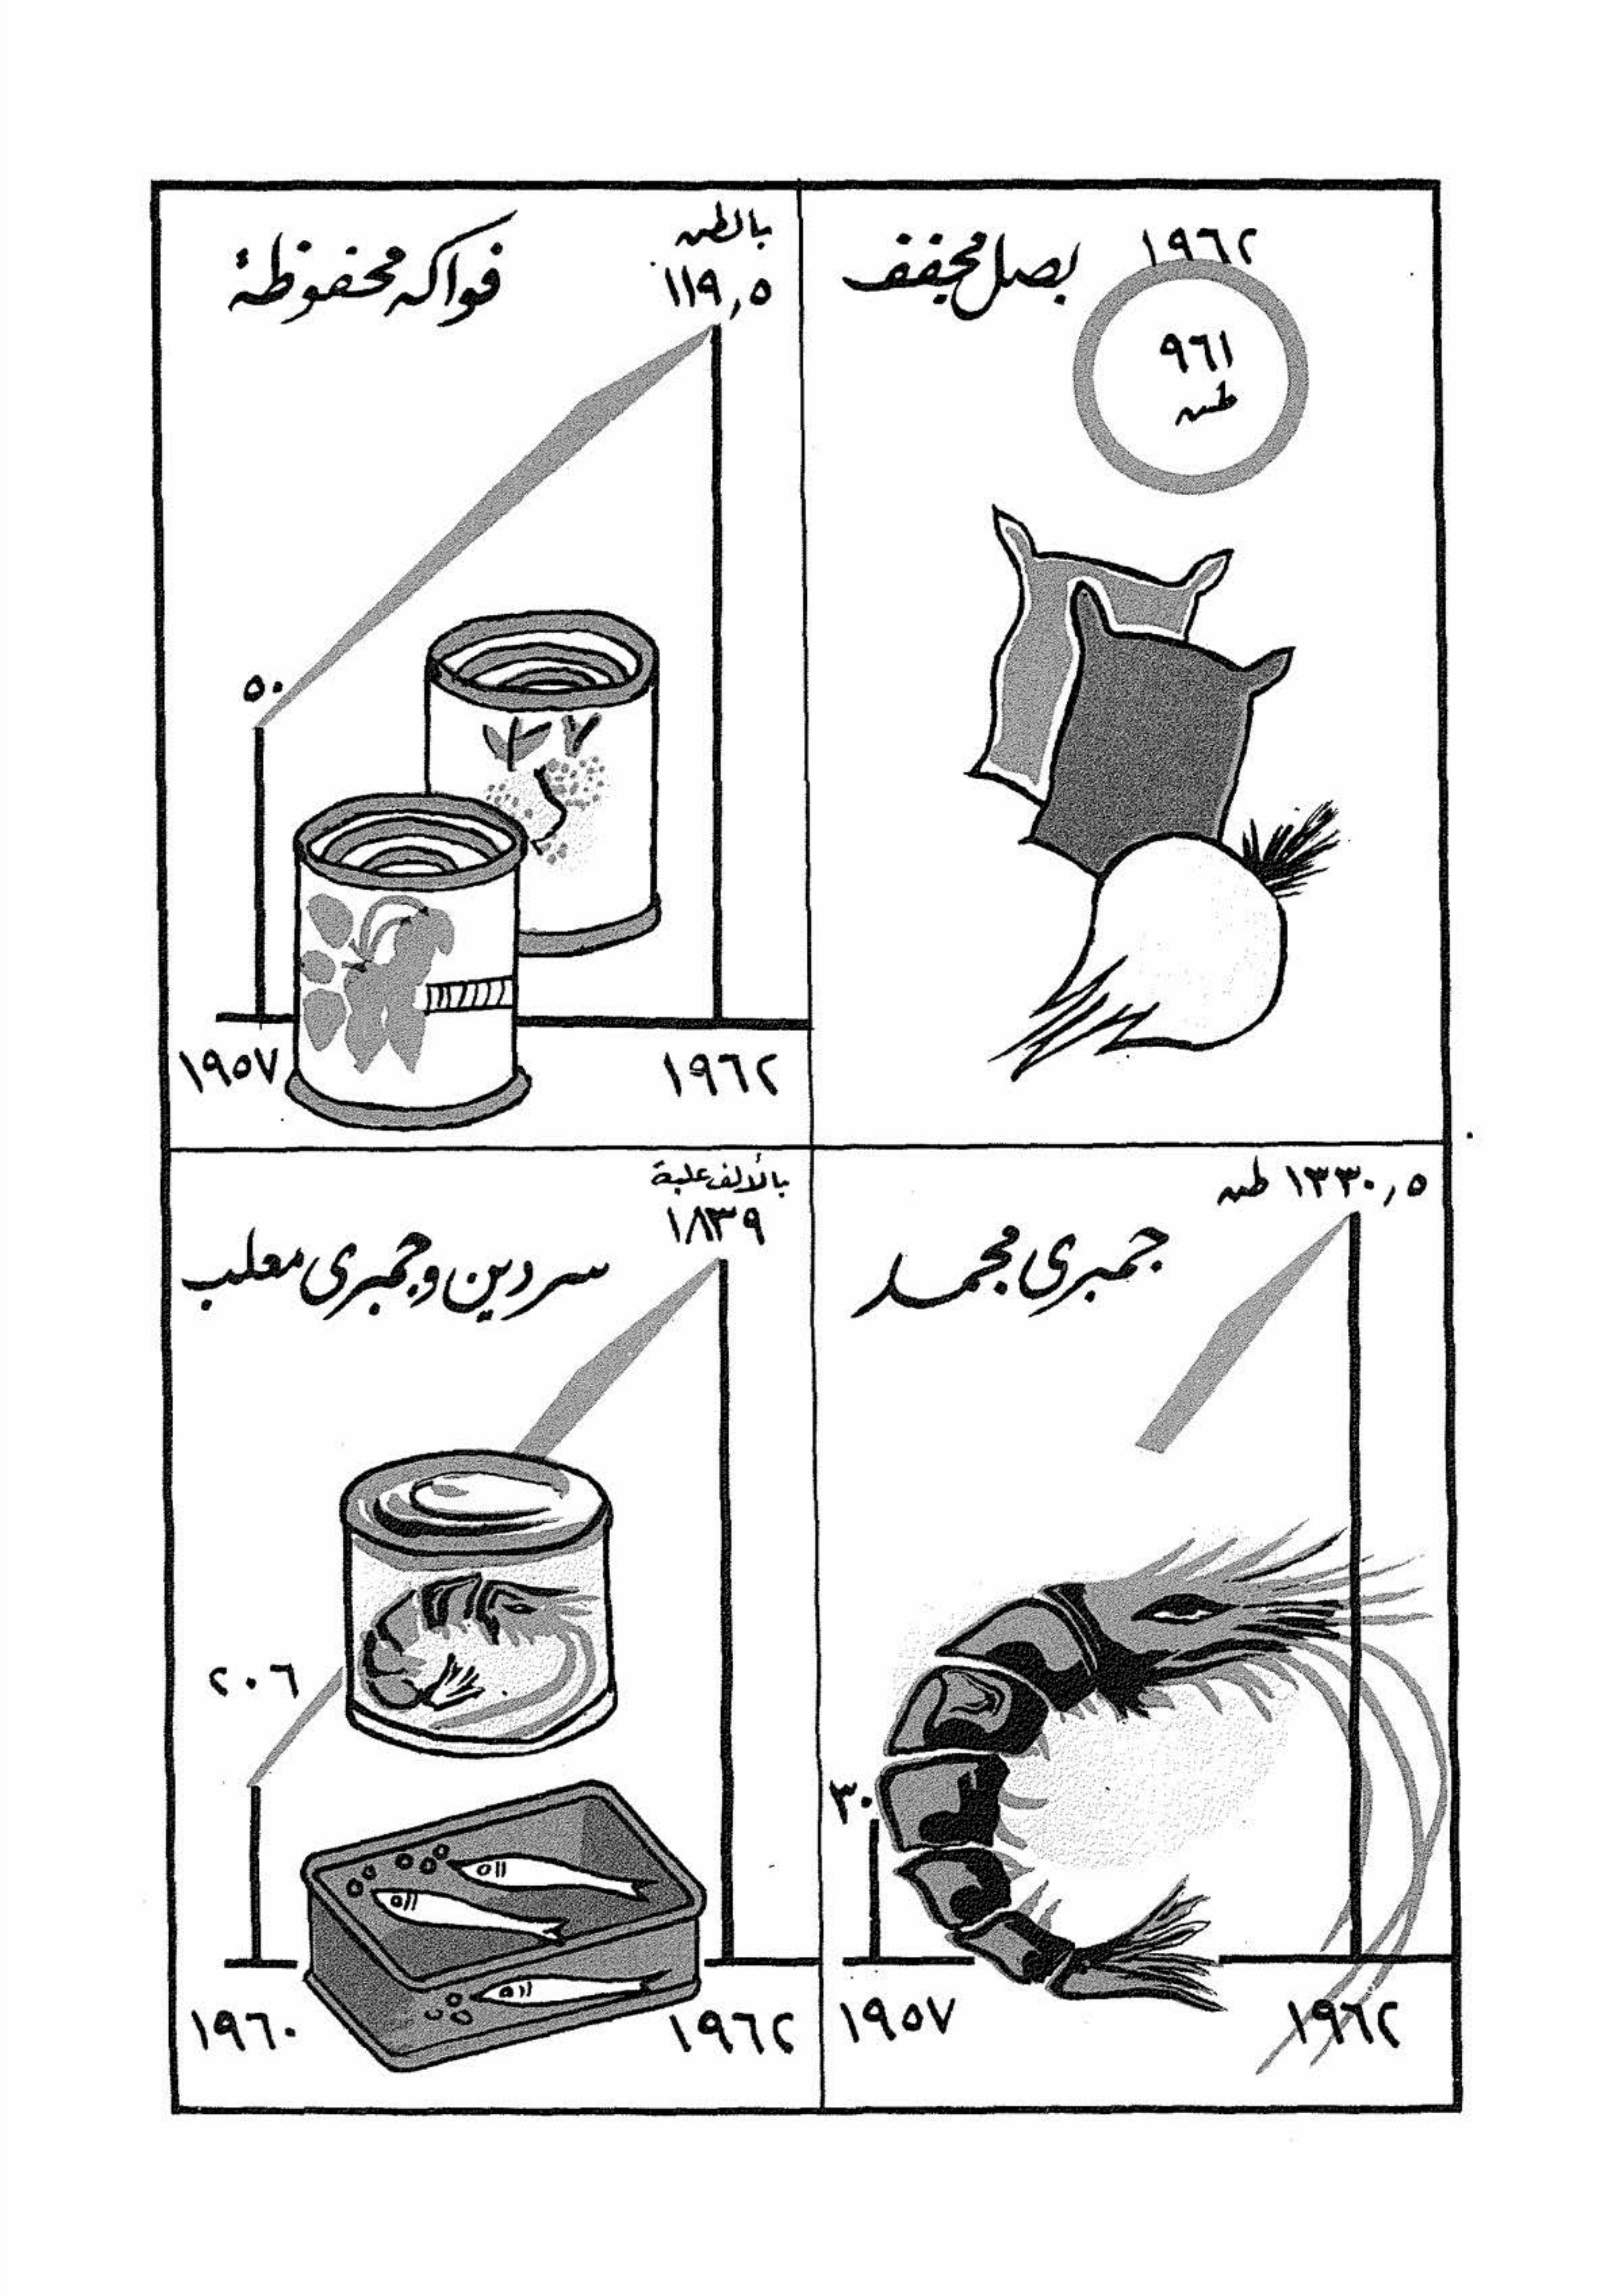 بصل مجفف
١٩٦٢
٩٦١
طن
فواكه محفوظة
بالطن
١١٩,٥
٥٠
١٩٥٧
١٩٦٢
جمبرى مجمد
١٣٣٠,٥ طن
٣٠
١٩٥٧
١٩٦٢
سردين وجمبرى معلب
بالألف علبة
١٨٣٩
٢٠٦
١٩٦٠
١٩٦٢